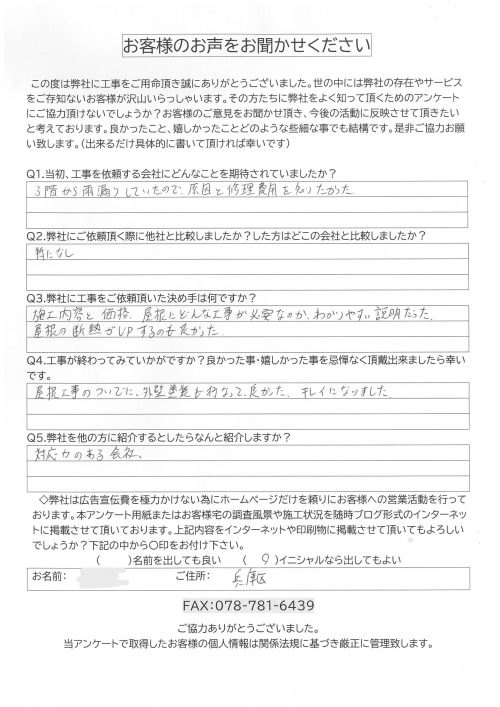 お客様のお声をお聞かせください
この度は弊社に工事をご用命頂き誠にありがとうございました。世の中には弊社の存在やサービス
をご存知ないお客様が沢山いらっしゃいます。その方たちに弊社をよく知って頂くためのアンケート
にご協力頂けないでしょうか？お客様のご意見をお聞かせ頂き、今後の活動に反映させて頂きたい
と考えております。良かったこと、嬉しかったことどのような些細な事でも結構です。是非ご協力お願
い致します。（出来るだけ具体的に書いて頂ければ幸いです）
Q1.当初、工事を依頼する会社にどんなことを期待されていましたか？
3階から雨漏りしていたので、原因と修理費用を知りたかった
Q2.弊社にご依頼頂く際に他社と比較しましたか？した方はどこの会社と比較しましたか？
特になし
Q3.弊社に工事をご依頼頂いた決め手は何ですか？
施工内容と価格、屋根にどんな工事が必要なのか、わかりやすい説明だった。
屋根の断熱がUPするのも良かった
Q4.工事が終わってみていかがですか？良かった事・嬉しかった事を忌憚なく頂戴出来ましたら幸い
です。
屋根工事のついでに、外壁塗装も行なって、良かった。キレイになりました。
Q5.弊社を他の方に紹介するとしたらなんと紹介しますか？
対応力のある会社、
◇弊社は広告宣伝費を極力かけない為にホームページだけを頼りにお客様への営業活動を行って
おります。本アンケート用紙またはお客様宅の調査風景や施工状況を随時ブログ形式のインターネッ
トに掲載させて頂いております。上記内容をインターネットや印刷物に掲載させて頂いてもよろしい
でしょうか？下記の中から〇印をお付け下さい。
（　　）名前を出しても良い　（ ○ ）イニシャルなら出してもよい
お名前：　ご住所：　兵庫区
FAX：078-781-6439
ご協力ありがとうございました。
当アンケートで取得したお客様の個人情報は関係法規に基づき厳正に管理致します。